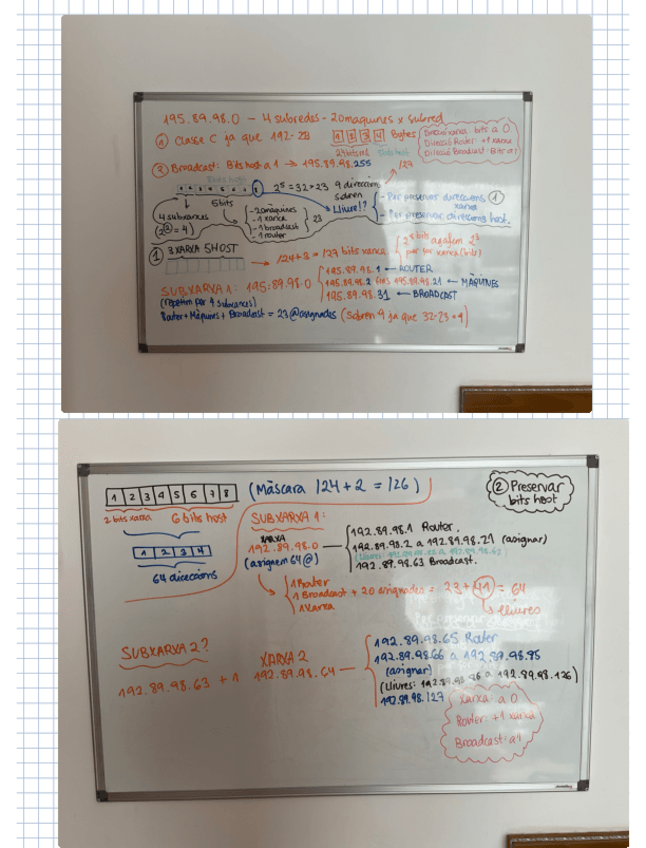 195.89.98.0 - 4 subredes - 20 maquines x subred
① Classe C ja que 192-223
1 2 3 4 Bytes
24 bits xarxa
Direcció xarxa: bits a 0
Direcció Router: +1 xarxa
Direcció Broadcast: Bits a 1
② Broadcast: Bits host a 1 → 195.89.98.255
/27
1 2 3 4 5 6 7 8
2⁵ = 32 > 23 9 direccions sobren
5 bits
4 subxarxes
(2² = 4)
- 20 màquines
- 1 xarxa
- 1 broadcast
- 1 router
23
Lliure!?
- Per preservar direccions xarxa ①
- Per preservar direccions host.
① 3 XARXA 5 HOST
→ 124+3 = 127 bits xarxa
SUBXARXA 1: 195.89.98.0
195.89.98.1 ← ROUTER
195.89.98.2 fins 195.89.98.21 ← MÀQUINES
195.89.98.31 ← BROADCAST
(repetim per 4 subxarxes)
Router + Màquines + Broadcast = 23 @ assignades (Sobren 9 ja que 32-23 = 9)
1 2 3 4 5 6 7 8
(Màscara /24 + 2 = /26)
② Preservar bits host
2 bits xarxa 6 bits host
1 2 3 4
64 direccions
SUBXARXA 1:
XARXA
192.89.98.0
(assignem 64 @)
192.89.98.1 Router.
192.89.98.2 a 192.89.98.21 (assignar)
192.89.98.63 Broadcast.
1 Router
1 Broadcast + 20 assignades = 23 + 41 = 64
1 Xarxa
lliures
SUBXARXA 2?
192.89.98.63 + 1
XARXA 2
192.89.98.64
192.89.98.65 Router
192.89.98.66 a 192.89.98.85
(assignar)
(Lliures: 192.89.98.86 a 192.89.98.126)
192.89.98.127
Xarxa: a 0
Router: +1 xarxa
Broadcast: a 1